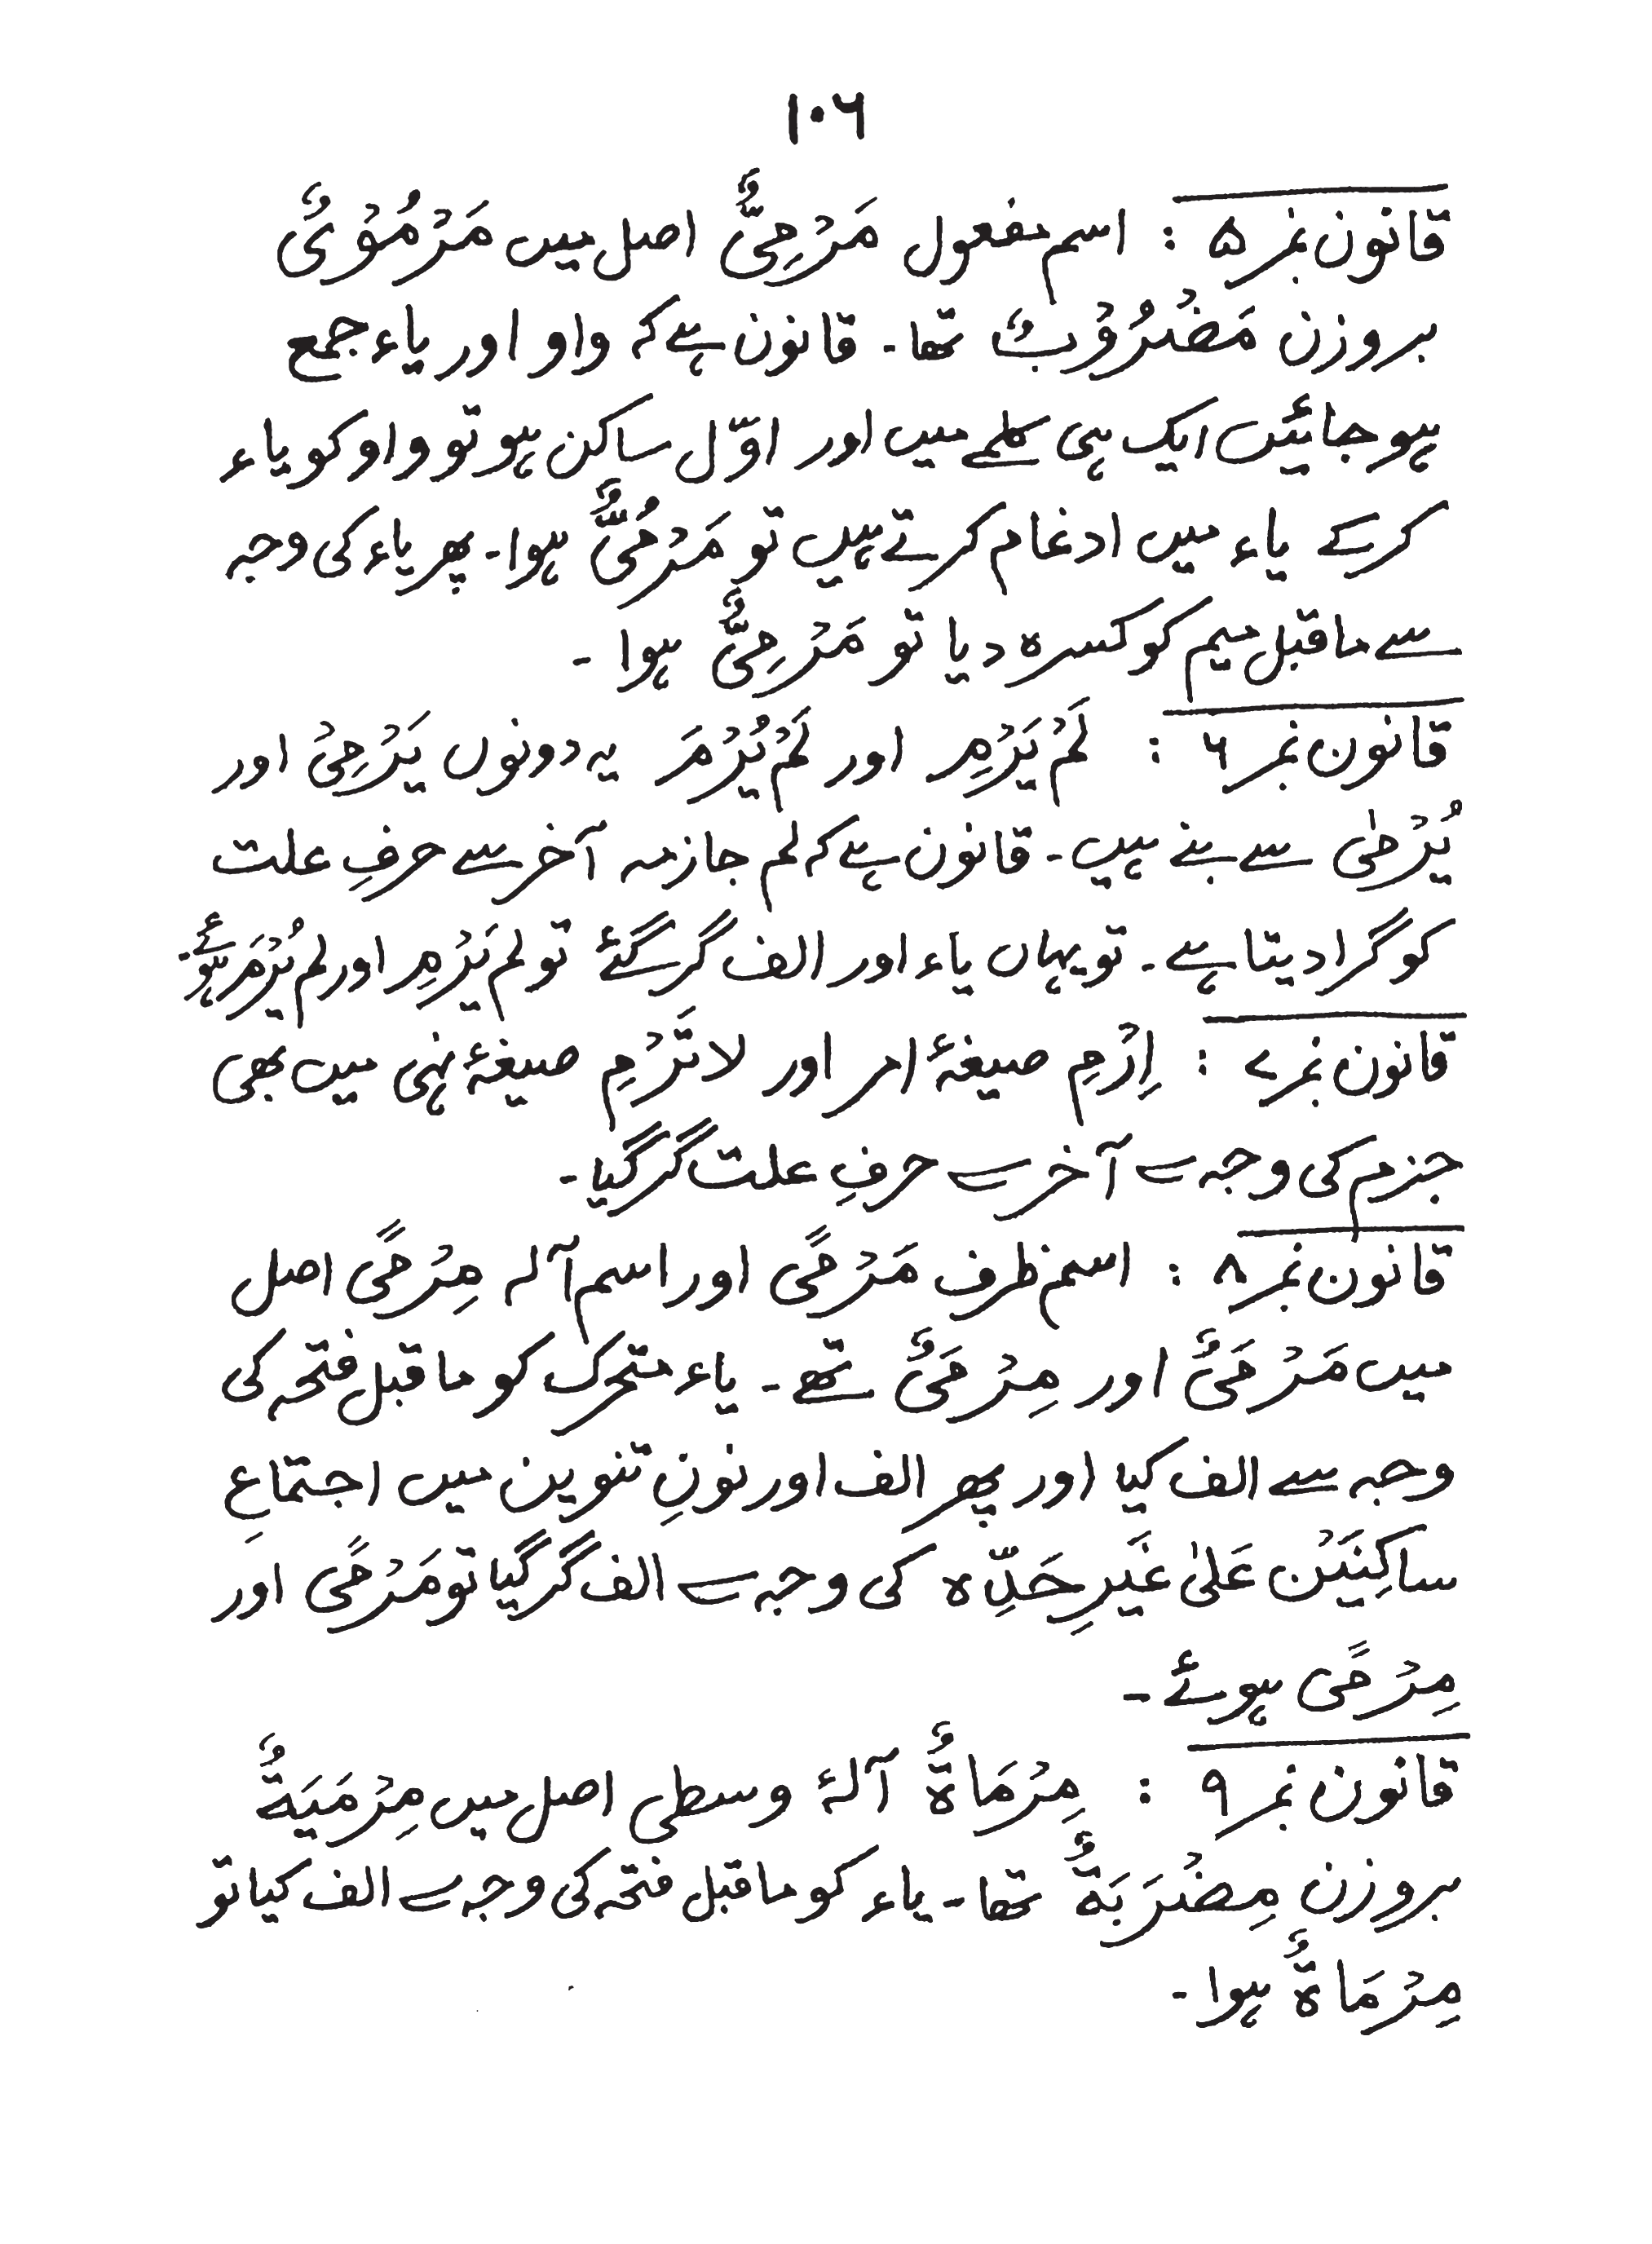 ۱۰۶
قانون نمبر ۵ : اسم مفعول مَرْمِیٌّ اصل میں مَرْمُوْیٌ
بروزن مَضْرُوْبٌ تھا۔ قانون ہے کہ واو اور یاء جمع
ہو جائیں ایک ہی کلمے میں اور اوّل ساکن ہو تو واو کو یاء
کرکے یاء میں ادغام کرتے ہیں تو مَرْمُیٌّ ہوا۔ پھر یاء کی وجہ
سے ماقبل میم کو کسرہ دیا تو مَرْمِیٌّ ہوا ۔
قانون نمبر ۶ : لَمْ یَرْمِ اور لَمْ یُرْمَ یہ دونوں یَرْمِیْ اور
یُرْمٰی سے بنے ہیں۔ قانون ہے کہ لم جازمہ آخر سے حرفِ علت
کو گرا دیتا ہے۔ تو یہاں یاء اور الف گر گئے تو لم یَرْمِ اور لم یُرْمَ ہوئے۔
قانون نمبر ۷ : اِرْمِ صیغۂ امر اور لا تَرْمِ صیغۂ نہی میں بھی
جزم کی وجہ سے آخر سے حرفِ علت گر گیا۔
قانون نمبر ۸ : اسم ظرف مَرْمًی اور اسم آلہ مِرْمًی اصل
میں مَرْمَیٌ اور مِرْمَیٌ تھے ۔ یاء متحرک کو ماقبل فتحہ کی
وجہ سے الف کیا اور پھر الف اور نونِ تنوین میں اجتماعِ
ساکِنَیْن عَلیٰ غَیرِ حَدِّہ کی وجہ سے الف گر گیا تو مَرْمًی اور
مِرْمًی ہوئے ۔
قانون نمبر ۹ : مِرْمَاةٌ آلۂ وسطی اصل میں مِرْمَیَةٌ
بروزن مِضْرَبَةٌ تھا۔ یاء کو ماقبل فتحہ کی وجہ سے الف کیا تو
مِرْمَاةٌ ہوا۔